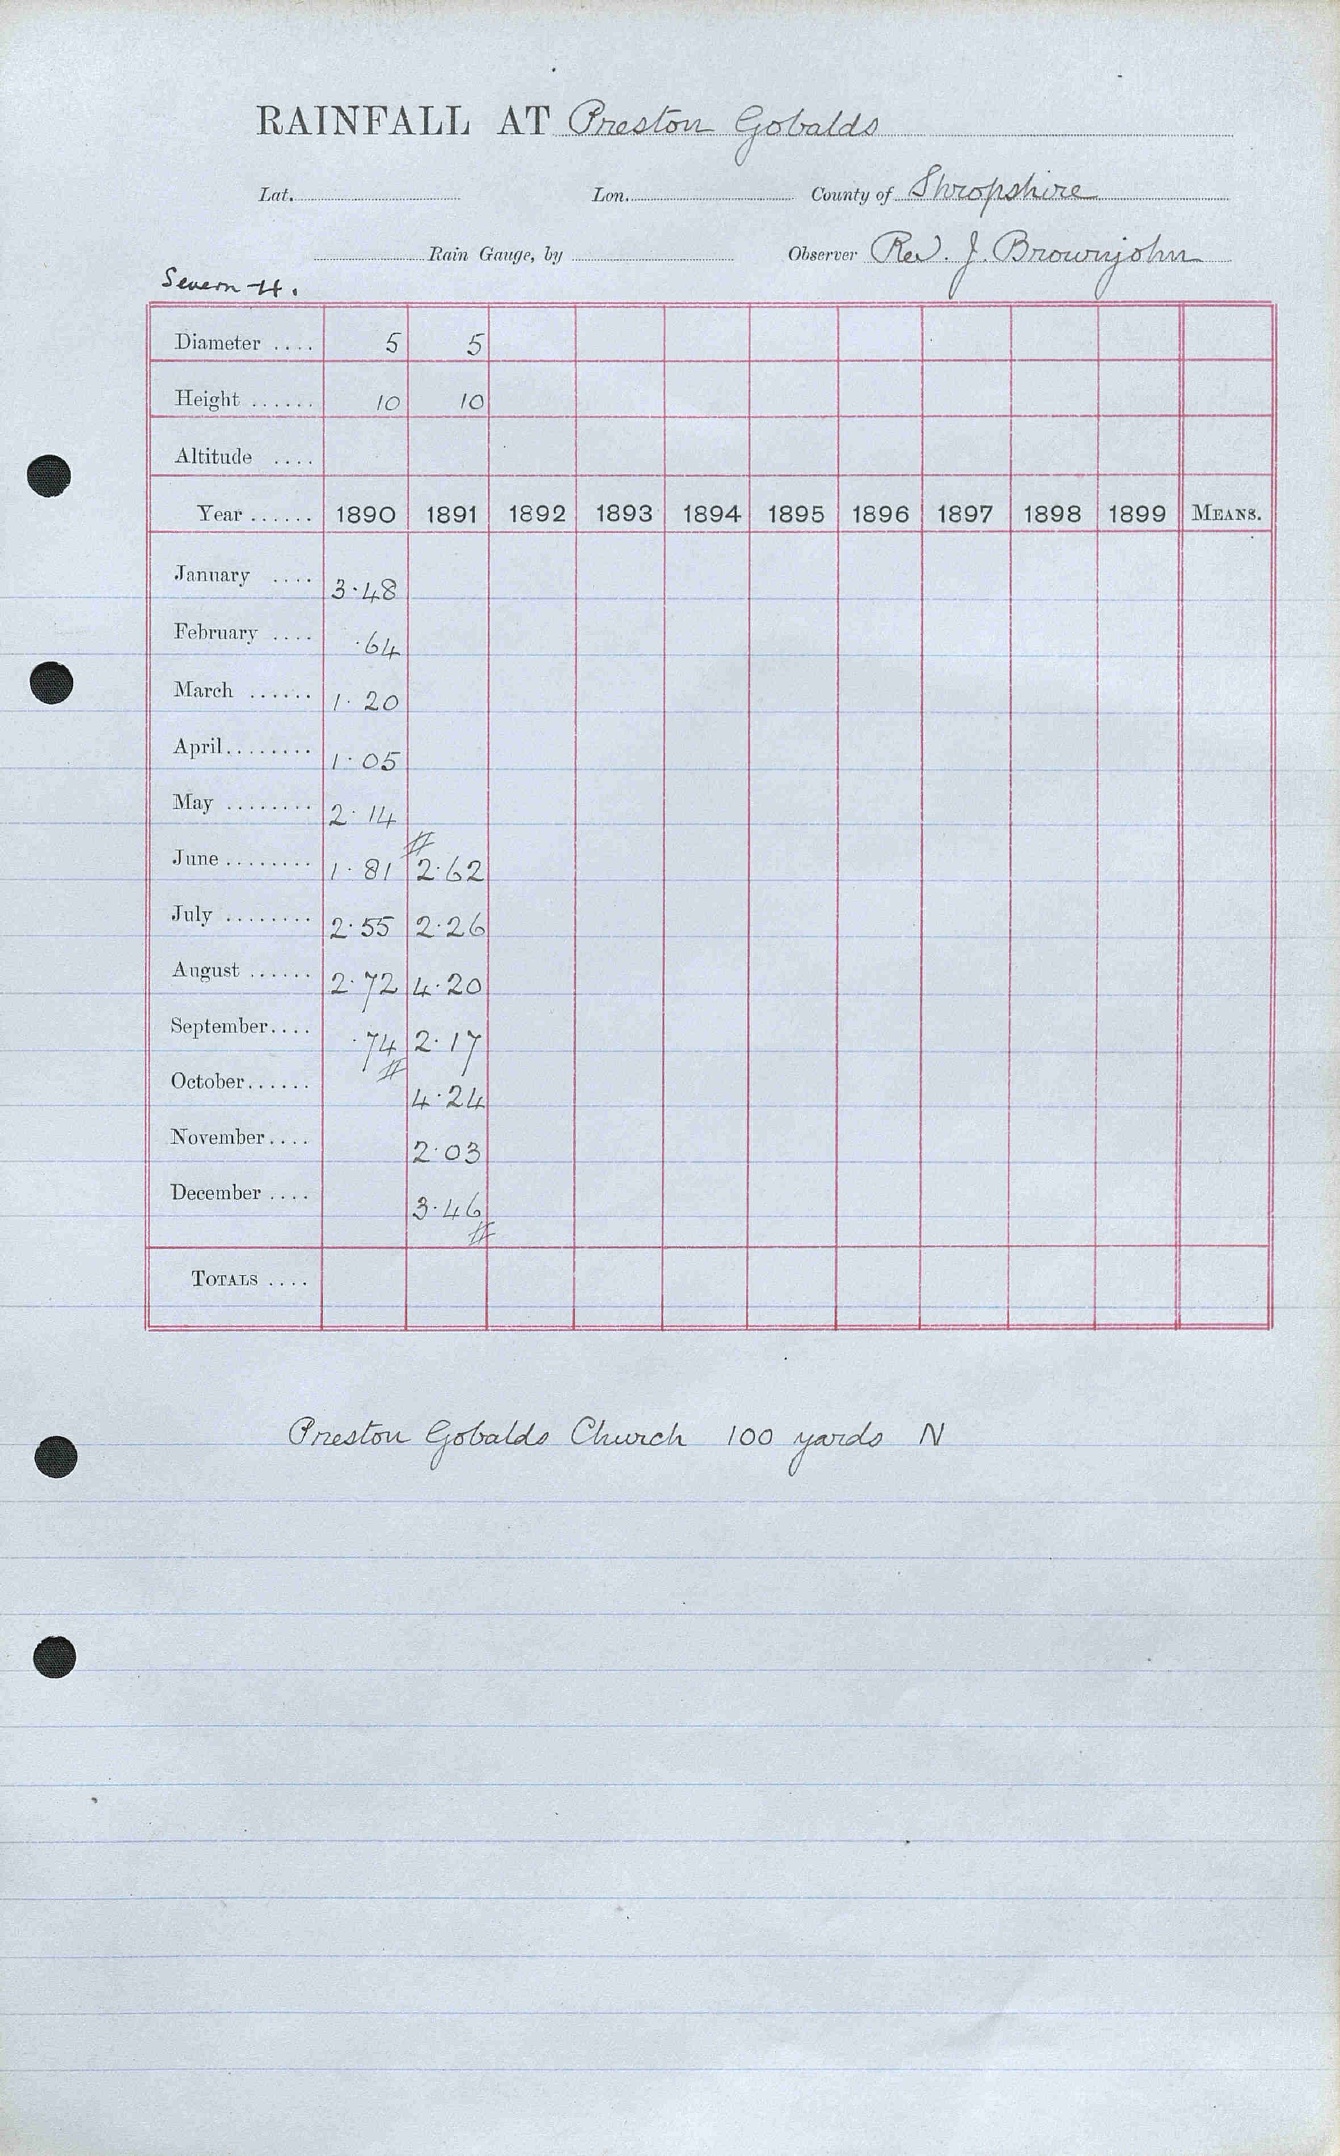 RAINFALL AT Preston Gobalds
Lat. Lon. County of Shropshire
Rain Gauge, by Observer Rev. J. Brownjohn
Severn 4.
Diameter .... 5 5
Height ...... 10 10
Altitude ....
Year ...... 1890 1891 1892 1893 1894 1895 1896 1897 1898 1899 MEANS.
January .... 3.48
February .... .64
March ...... 1.20
April ........ 1.05
May ........ 2.14
#
June ........ 1.81 2.62
July ........ 2.55 2.26
August ...... 2.72 4.20
September.... .74 2.17
#
October...... 4.24
November.... 2.03
December .... 3.46
#
TOTALS ....
Preston Gobalds Church 100 yards N